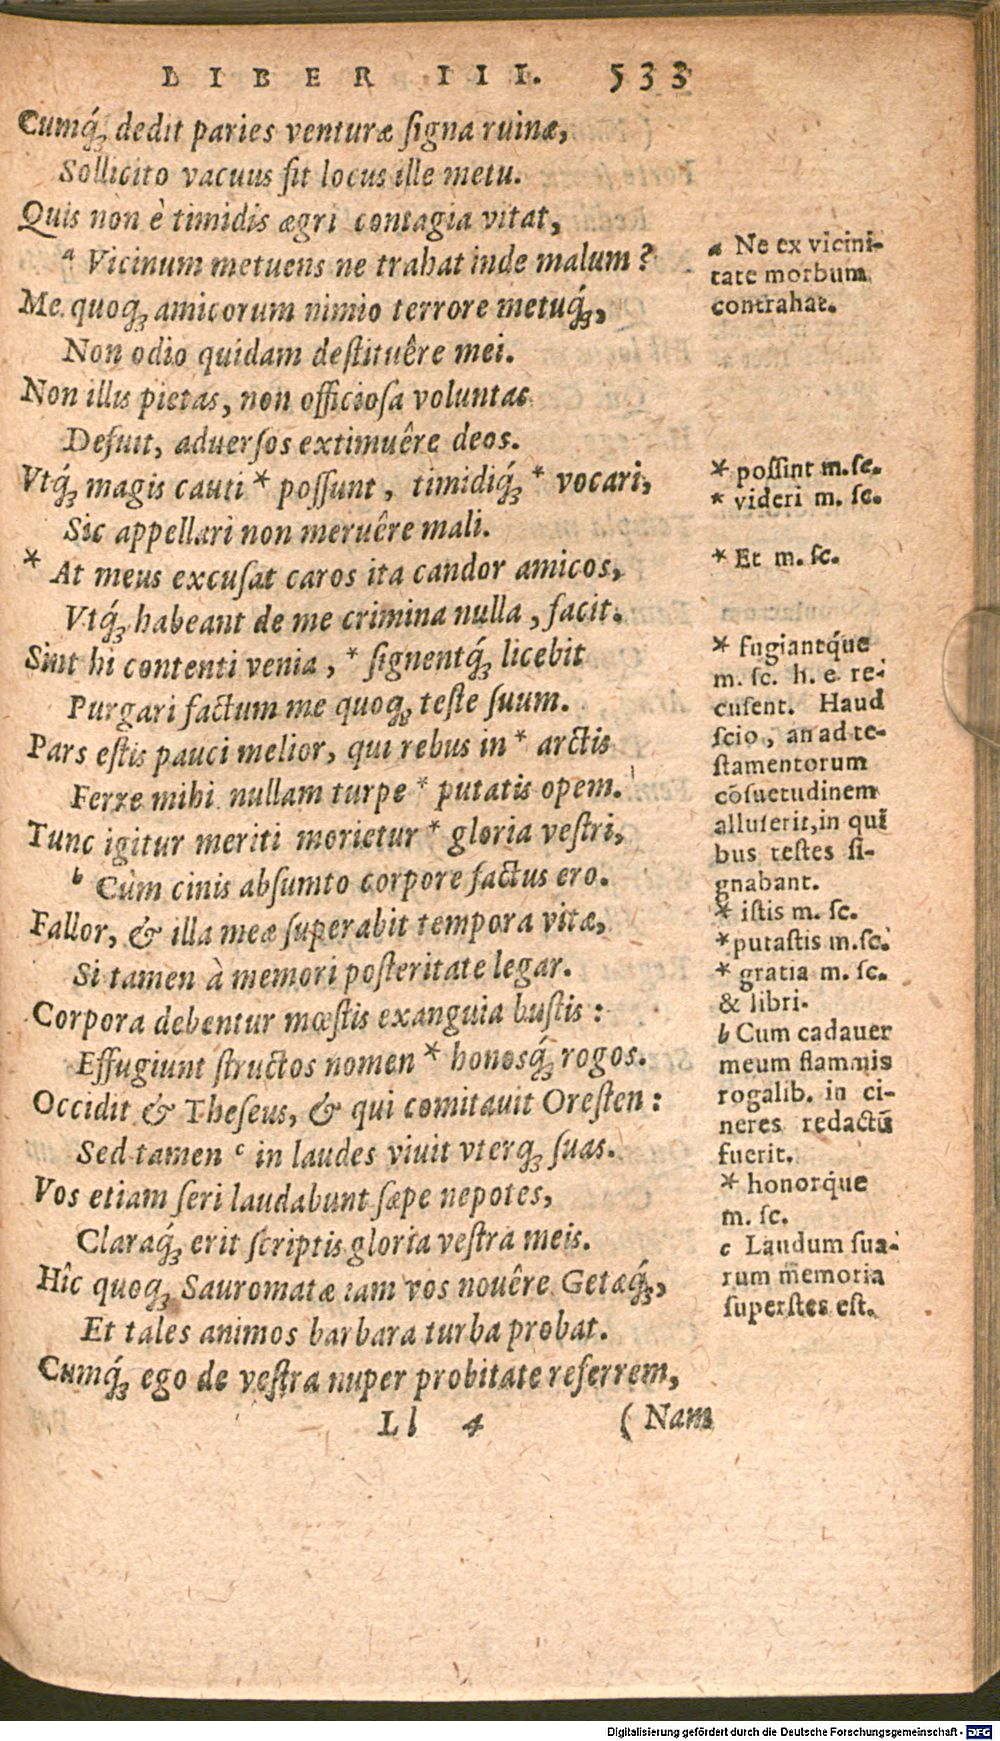 LIBER III. 533
Cumq́; dedit paries venturæ ſigna ruinæ,
Sollicito vacuus ſit locus ille metu.
Quis non è timidis ægri contagia vitat,
a Vicinum metuens ne trahat inde malum?
Me quoq; amicorum nimio terrore metuq́;,
Non odio quidam deſtituêre mei.
Non illis pietas, non officioſa voluntas
Defuit, aduerſos extimuêre deos.
Vtq́; magis cauti * poſſunt, timidiq́; * vocari,
Sic appellari non meruêre mali.
* At meus excuſat caros ita candor amicos,
Vtq́; habeant de me crimina nulla, facit.
Sint hi contenti venia, * ſignentq́; licebit
Purgari factum me quoq; teſte ſuum.
Pars eſtis pauci melior, qui rebus in * arctis
Ferre mihi nullam turpe * putatis opem.
Tunc igitur meriti morietur * gloria veſtri,
b Cùm cinis abſumto corpore factus ero.
Fallor, & illa meæ ſuperabit tempora vitæ,
Si tamen à memori poſteritate legar.
Corpora debentur mœſtis exanguia buſtis:
Effugiunt ſtructos nomen * honosq́; rogos.
Occidit & Theſeus, & qui comitauit Oreſten:
Sed tamen c in laudes viuit vterq; ſuas.
Vos etiam ſeri laudabunt ſæpe nepotes,
Claraq́; erit ſcriptis gloria veſtra meis.
Hîc quoq; Sauromatæ iam vos nouêre Getæq́;,
Et tales animos barbara turba probat.
Cumq́; ego de veſtra nuper probitate referrem,
Ll 4 (Nam
a Ne ex vicini-
tate morbum
contrahat.
* poſſint m.ſc.
* videri m. ſc.
* Et m. ſc.
* fugiantq́ue
m. ſc. h. e. re-
cuſent. Haud
ſcio, an ad te-
ſtamentorum
cõſuetudinem
alluſerit, in quĩ
bus teſtes ſi-
gnabant.
* iſtis m. ſc.
* putaſtis m.ſc.
* gratia m. ſc.
& libri.
b Cum cadauer
meum flammis
rogalib. in ci-
neres redactũ
fuerit.
* honorq́ue
m. ſc.
c Laudum ſua-
rum memoria
ſuperſtes eſt.
Digitalisierung gefördert durch die Deutsche Forschungsgemeinschaft - DFG